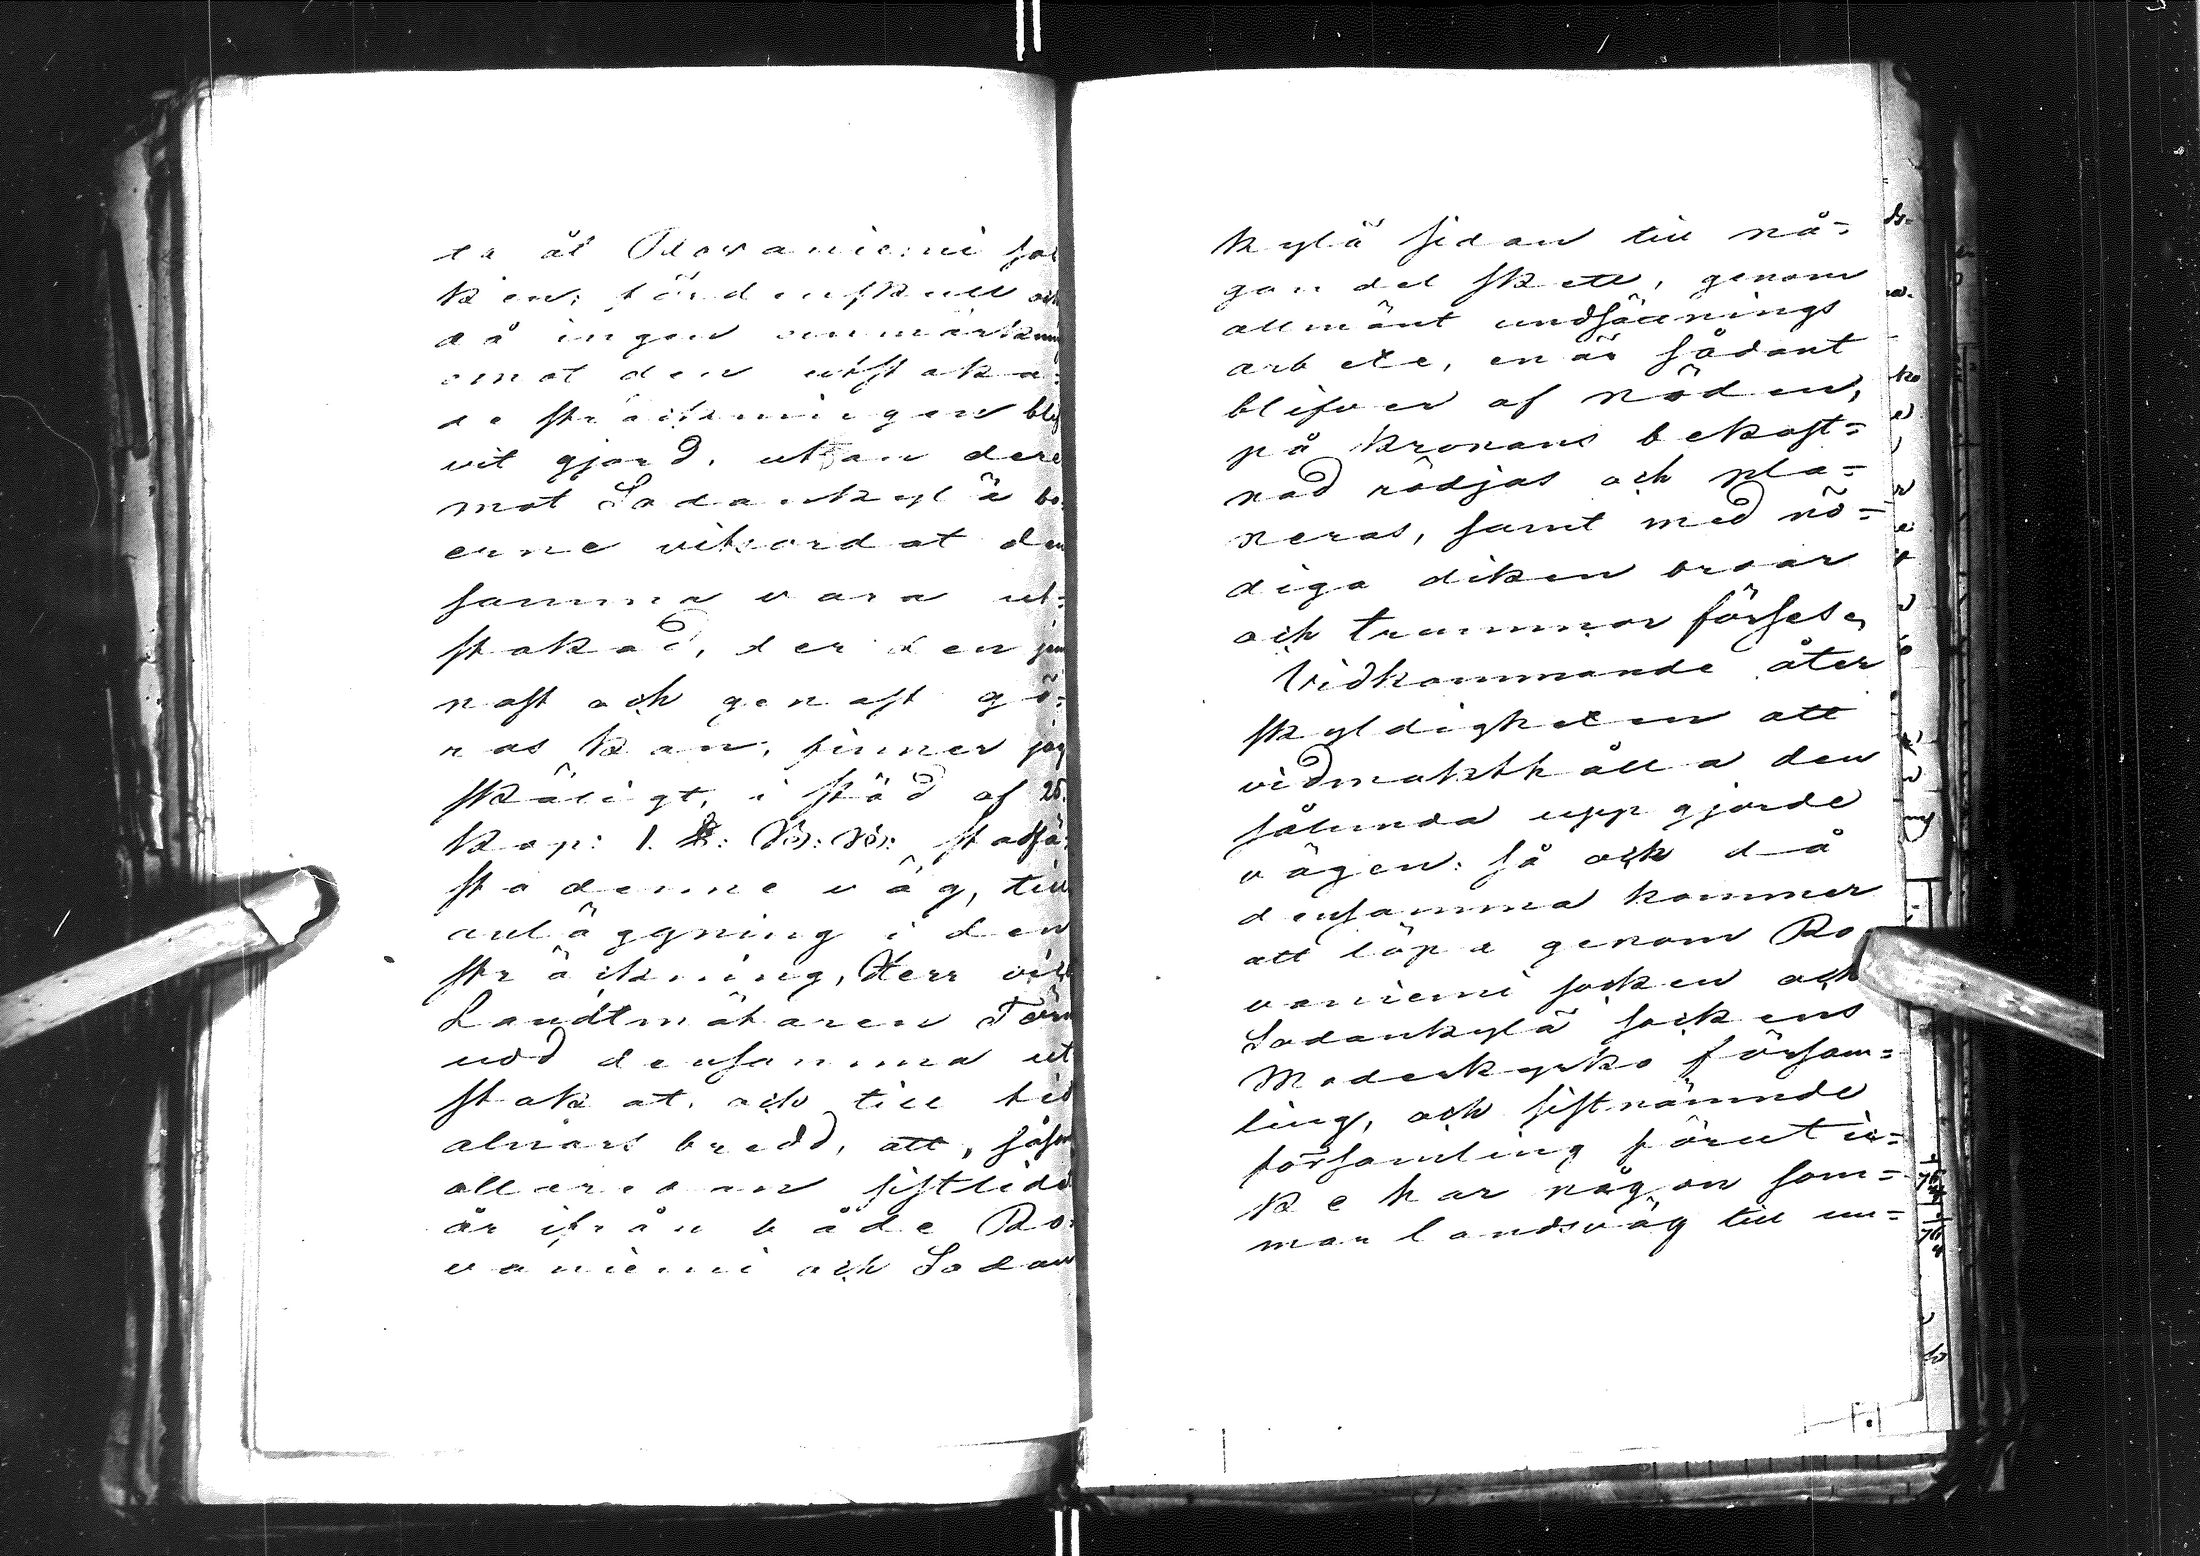 ta åt Rovaniemi soc
ken: fördenskull och
då ingen anmärkning
emot den utstaka=
de sträckningen blif
vit gjord, utan dere
mot Sodankylä bo
erne vitsordat den
samma vara ut=
stakad, der den jem
nast och genast gö=
ras kan, finner jag
skäligt, i stöd af 25.
Kap: 1. §: B: B: stadfä=
sta denne väg, till
anläggning i den
sträckning, Herr vice
Landtmätaren Törn
udd densamma ut
stakat, och till tio
alnars bredd, att, såsom
allaredan sistlidit
år ifrån både Ro=
vaniemi och Sodan
kylä sidan till nå=
gon del skett, genom
allmänt undsättnings
arbete, enär sådant
blifver af nöden,
på Kronans bekost=
nad rödjas och pla=
neras, samt med nö=
diga diken broar
och trummor förses.
Vidkommande åter
skyldigheten att
vidmakthålla den
sålunda uppgjorde
vägen: så och då
densamma kommer
att löpa genom Ro
vaniemi socken och
Sodankylä sockens
Moderkyrko försam=
ling, och sistnämnde
församling förut ic=
ke har någon som=
mar landsväg till un=